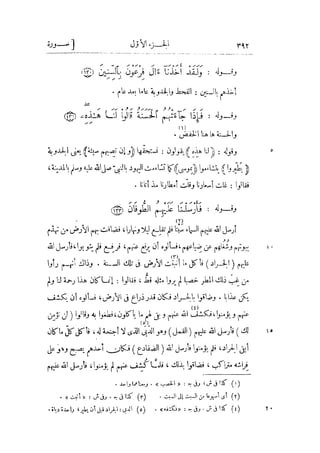 ٣٩٢ الجزء الأول [ سورة
وقوله : وَلَقَدْ أَخَذْنَآ ءَالَ فِرْعَوْنَ بِٱلسِّنِينَ (١٣٠)
أخذهم بالسنين : القحط والجدوبة عاما بعد عام .
وقوله : فَإِذَا جَآءَتْهُمُ ٱلْحَسَنَةُ قَالُوا۟ لَنَا هَـٰذِهِۦ (١٣١)
والحسنة هاهنا الخفض (١) .
٥ وقوله : ( لنا هذه ) يقولون : نستحقها ( وإن تصبهم سيئة ) يعنى الجدوبة
( يطيروا ) يتشاءموا ( بموسى ) كما تشاءمت اليهود بالنبىّ صلى الله عليه وسلم بالمدينة ،
فقالوا : غلت أسعارنا وقلت أمطارنا مذ أتانا .
وقوله : فَأَرْسَلْنَا عَلَيْهِمُ ٱلطُّوفَانَ (١٣٣)
أرسل الله عليهم السماء سبتا (٢) فلم تقلع ليلا ونهارا ، فضاقت بهم الأرض من تهدّم
١٠ بيوتهم وشغلهم عن ضياعهم ، فسألوه أن يرفع عنهم ، فرفع فلم يتوبوا ، فأرسل الله
عليهم ( الجراد ) فأكل ما أنبتت (٣) الأرض فى تلك السنة . وذلك أنهم رأوا
من غِبّ ذلك المطر خصبا لم يروا مثله قطّ ، فقالوا : إنما كان هذا رحمة لنا ولم
يكن عذابا . وضاقوا بالجراد فكان قدر ذراع فى الأرض ، فسألوه أن يكشف
عنهم ويؤمنوا ، فكشف (٤) الله عنهم وبقى لهم ما يأكلون ، فطغوا به وقالوا ( لن نؤمن
١٥ لك ) فأرسل الله عليهم ( القمل ) وهو الدبى (٥) الذى لا أجنحة له ، فأكل كلّ ما كان
أبقى الجراد ، فلم يؤمنوا فأرسل الله ( الضفادع ) فكان أحدهم يصبح وهو على
فراشه متراكب ، فضاقوا بذلك ، فلمّا كُشف عنهم لم يؤمنوا ، فأرسل الله عليهم
(١) كذا فى ش ، وفى ج : « الخصب » . ومعناهما واحد .
(٢) أى أسبوعا من السبت إلى السبت . (٣) كذا فى ج . وفى ش : « أنبت » .
٢٠ (٤) كذا فى ش . وفى ج : « فكشفه » . (٥) الدبى : الجراد قبل أن يطير ، واحدة دباة .